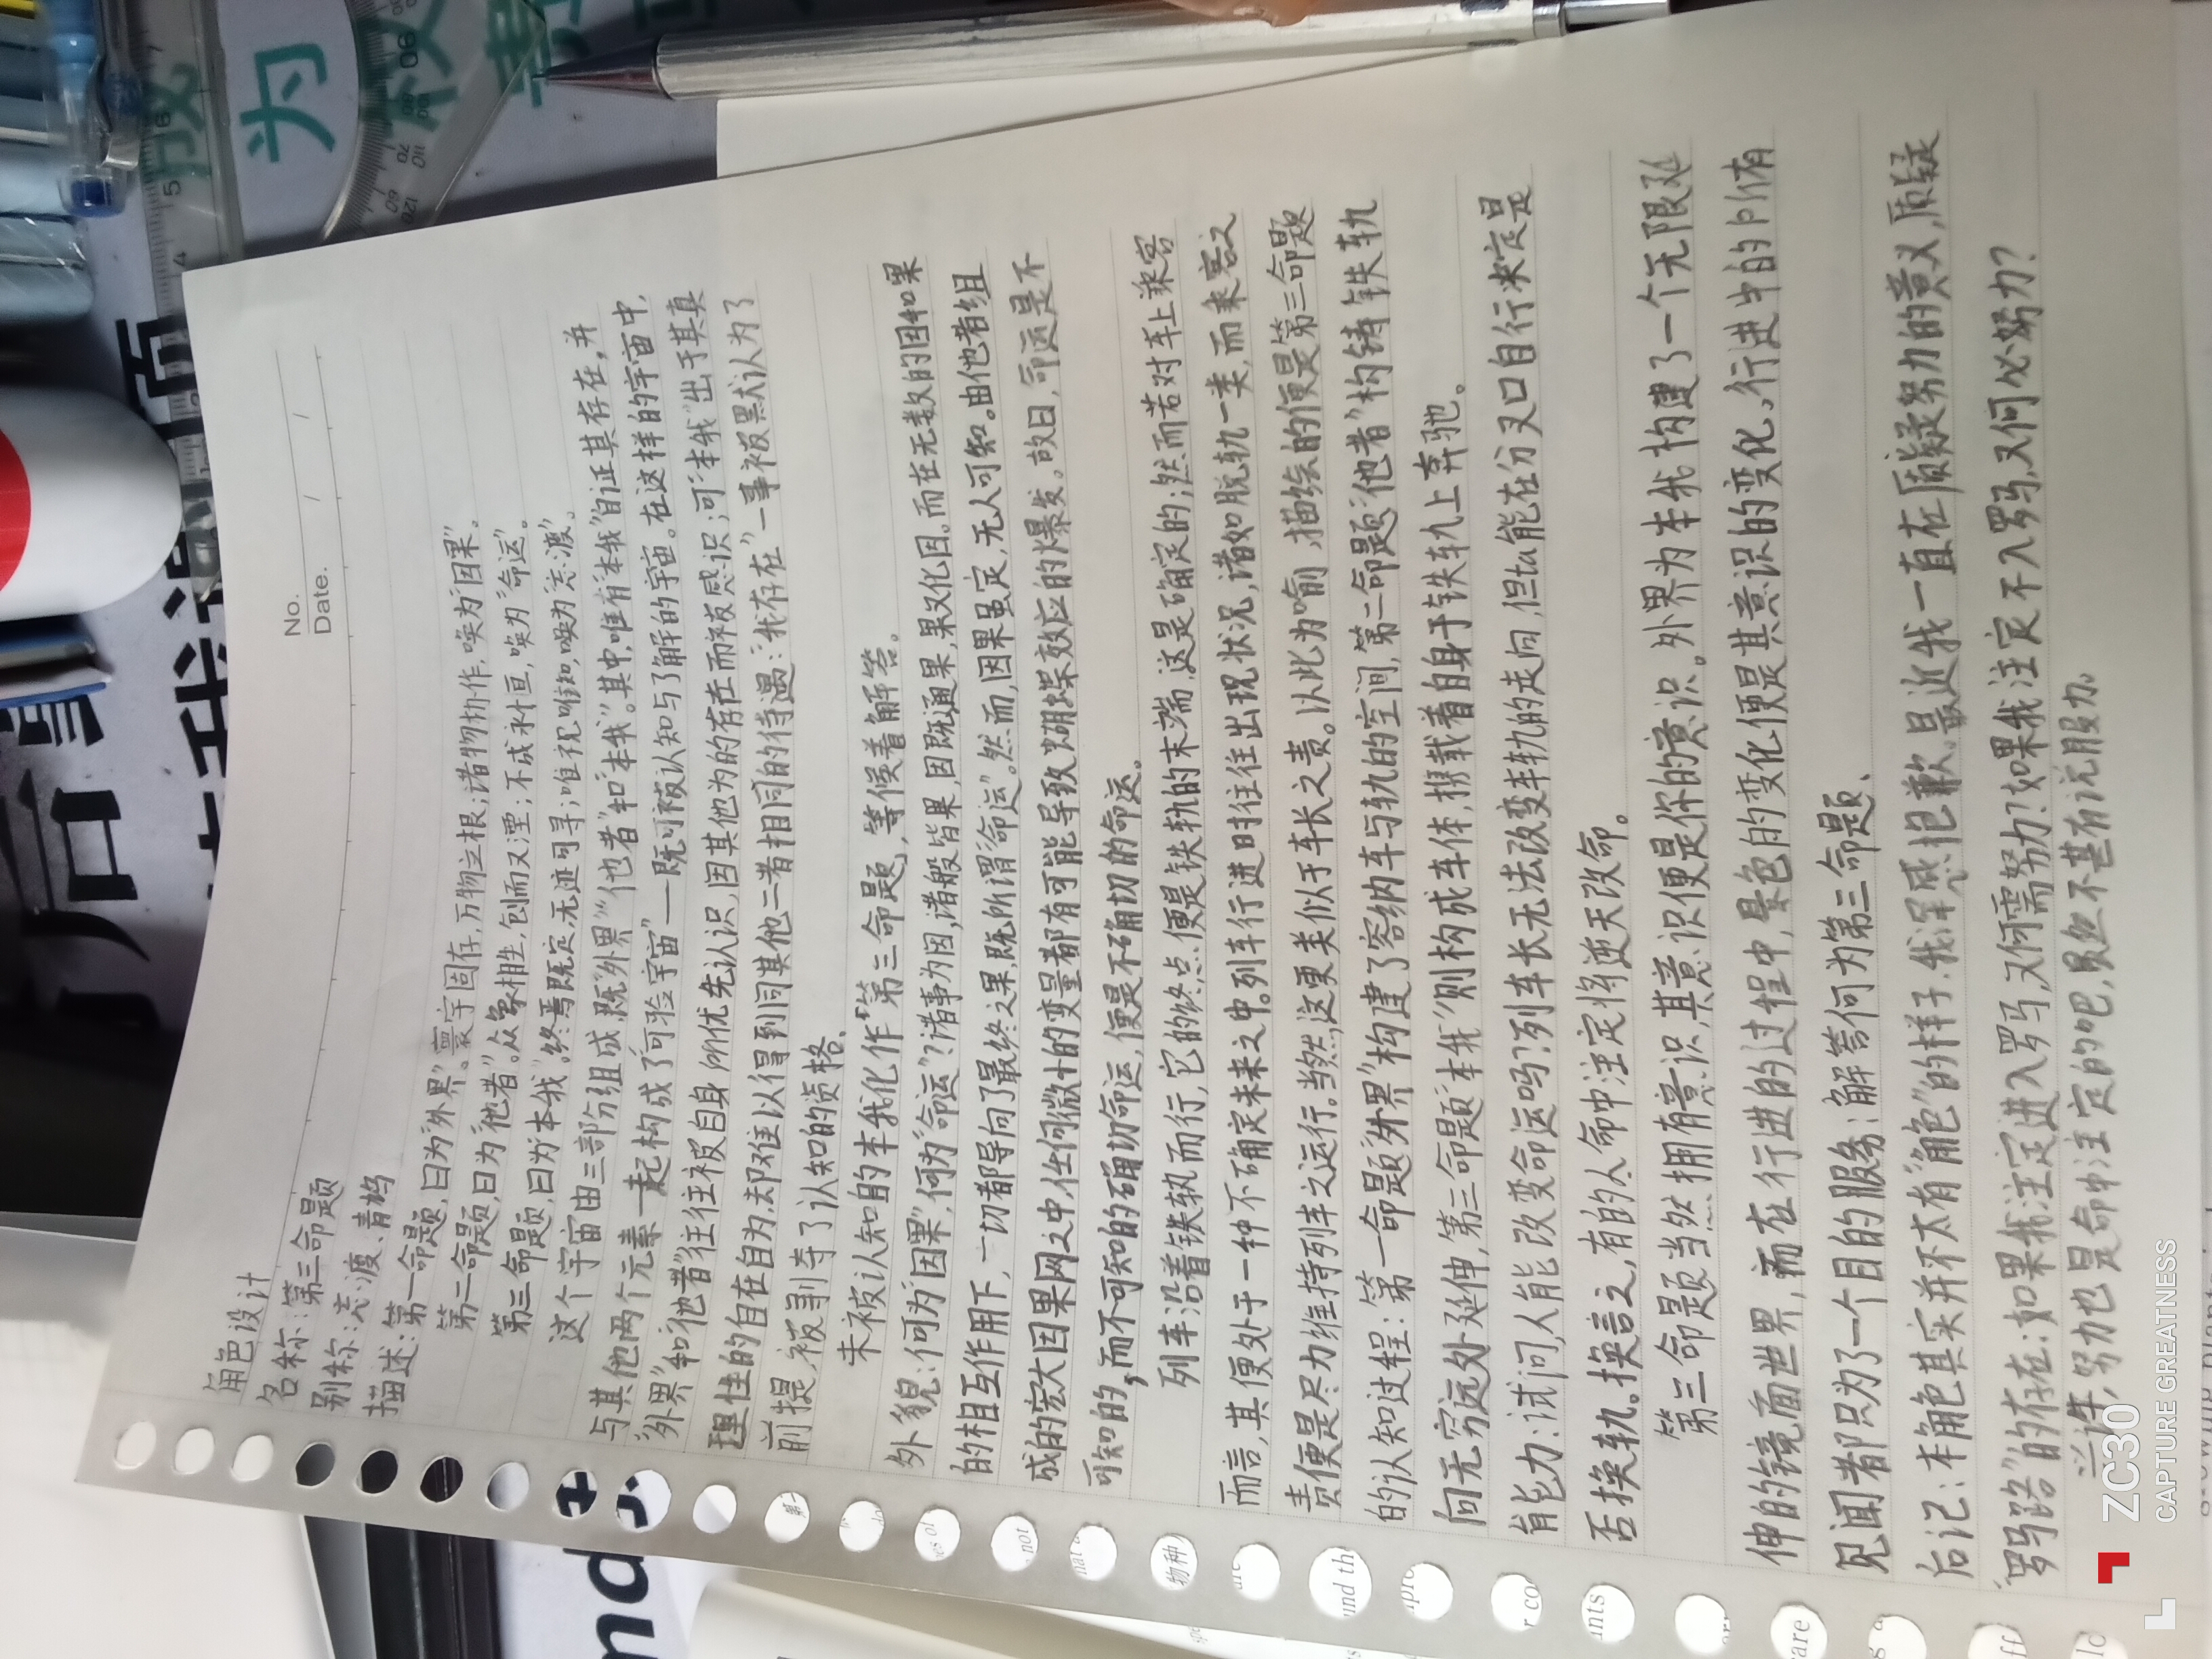 No.
Date. / /
角色设计
名称:第三命题
别称:渡、青鸫
描述:第一命题,曰为“外界”。寰宇固存,万物立根;诸物协作,唤为“因果”。
第二命题,曰为“他者”。众象相生,刨而又湮;不成永恒,唤为“命运”。
第三命题,曰为“本我”。终焉既定,无迹可寻;唯视唯知,唤为“渡”。
这个宇宙由三部份组成 既“外界”“他者”和“本我”。其中,唯有“本我”自证其存在,并
与其他两个元素一起构成了“可验宇宙”——既可被认知与了解的宇宙。在这样的宇宙中,
“外界”和“他者”往往被自身所优先认识,因其他为的存在而被感识;可“本我”出于其真
理性的自在自为,却难以得到同其他二者相同的待遇:“我存在”一事被默认为了
前提,被剥夺了认知的资格、
未被认知的本我化作“第三命题”,等候着解答。
外貌:何为“因果”,何为“命运”?诸事为因,诸般皆果,因既通果,果又化因。而在无数的因和果
的相互作用下,一切都导向了最终之果,既所谓“命运”。然而,因果虽定,无人可知。由他者组
成的宏大因果网之中,任何微小的变量都有可能导致蝴蝶效应的爆发。故曰,命运是不
可知的,而不可知的确切命运,便是不确切的命运。
列车沿着铁轨而行,它的终点便是铁轨的末端,这是确定的;然而若对车上乘客
而言,其便处于一种不确定未来之中。列车行进时往往出现状况,诸如脱轨一类,而乘客之
责便是尽力维持列车之运行。当然,这更类似于车长之责。以此为喻,描绘的便是第三命题
的认知过程:第一命题“外界”构建了容纳车与轨的空间,第二命题“他者”构铸铁轨
向无穷远处延伸,第三命题“本我”则构成车体,携载着自身于铁轨上奔驰。
能力:试问,人能改变命运吗?列车长无法改变车轨的走向,但ta能在分叉口自行决定是
否换轨。换言之,有的人命中注定将逆天改命。
第三命题当然拥有意识,其意识便是你的意识。外界为本我构建了一个无限延
伸的镜面世界,而在行进的过程中,景色的变化便是其意识的变化,行进中的所有
见闻都只为了一个目的服务:解答何为第三命题、
后记:本角色其实并不太有“角色”的样子,我深感抱歉。最近我一直在质疑努力的意义,质疑
“罗马路”的存在:如果我注定进入罗马,又何需努力?如果我注定不入罗马,又何必努力?
努力也是命中注定的吧,虽然不甚有说服力。
ZC30
CAPTURE GREATNESS
为
物种
are